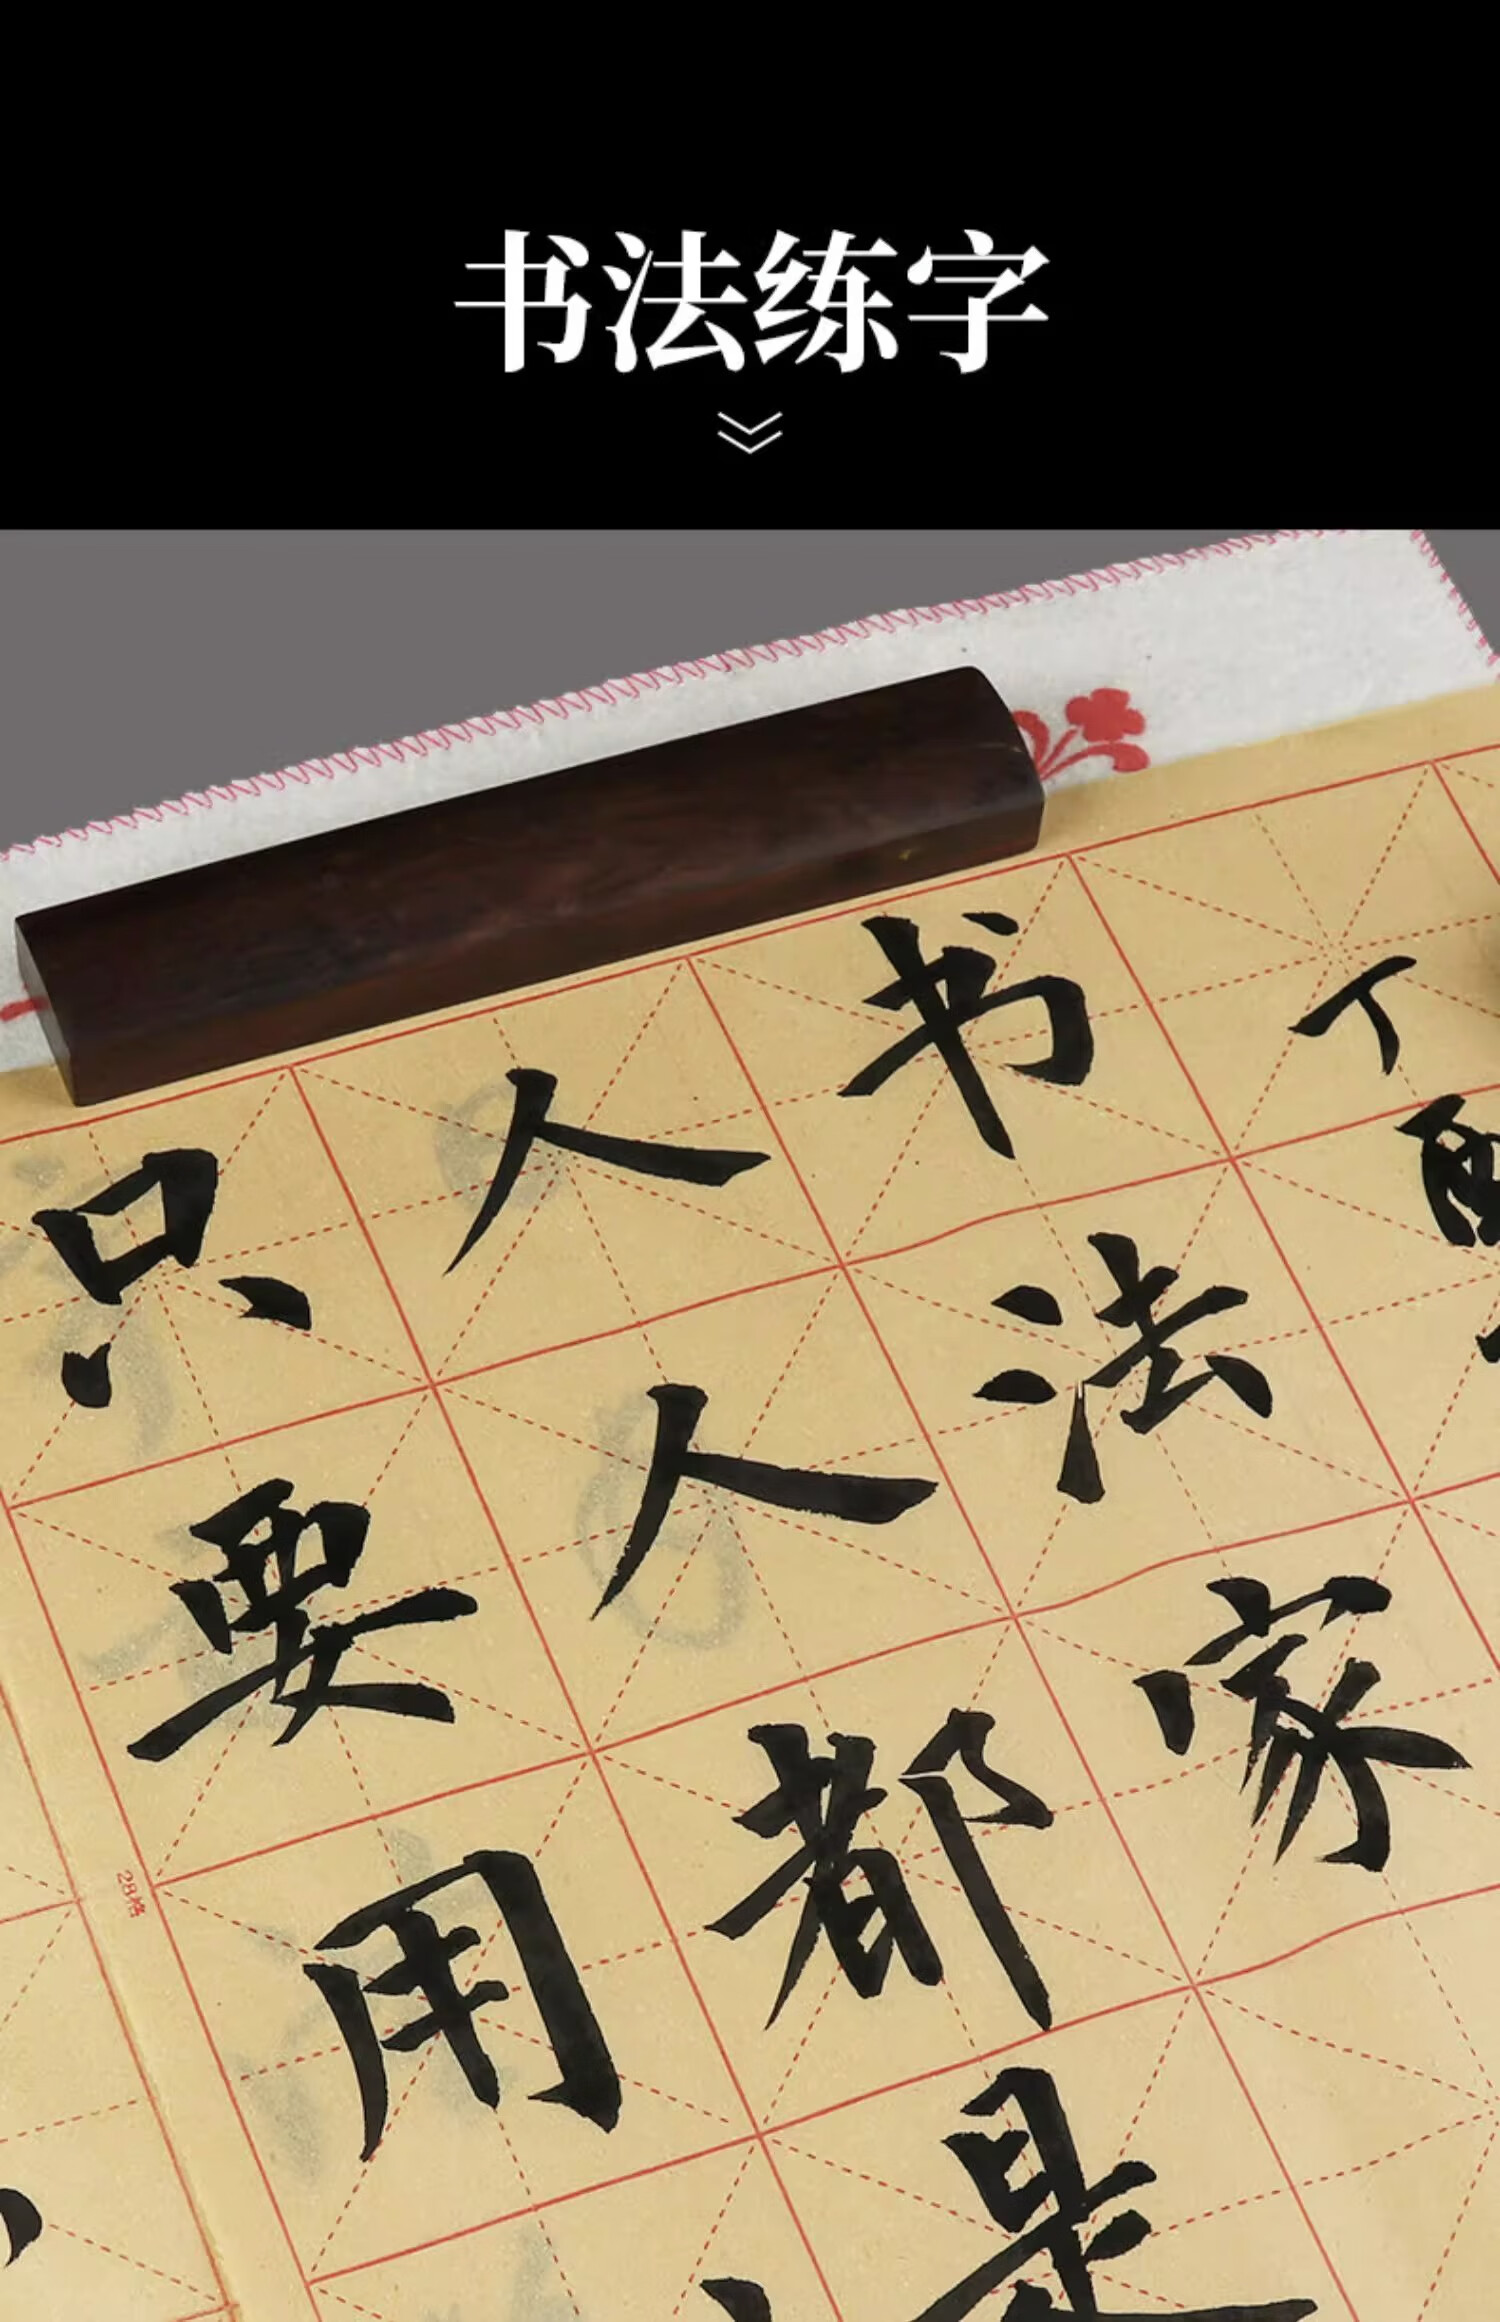 书法练字
只要用
人人都是
书法家
28格